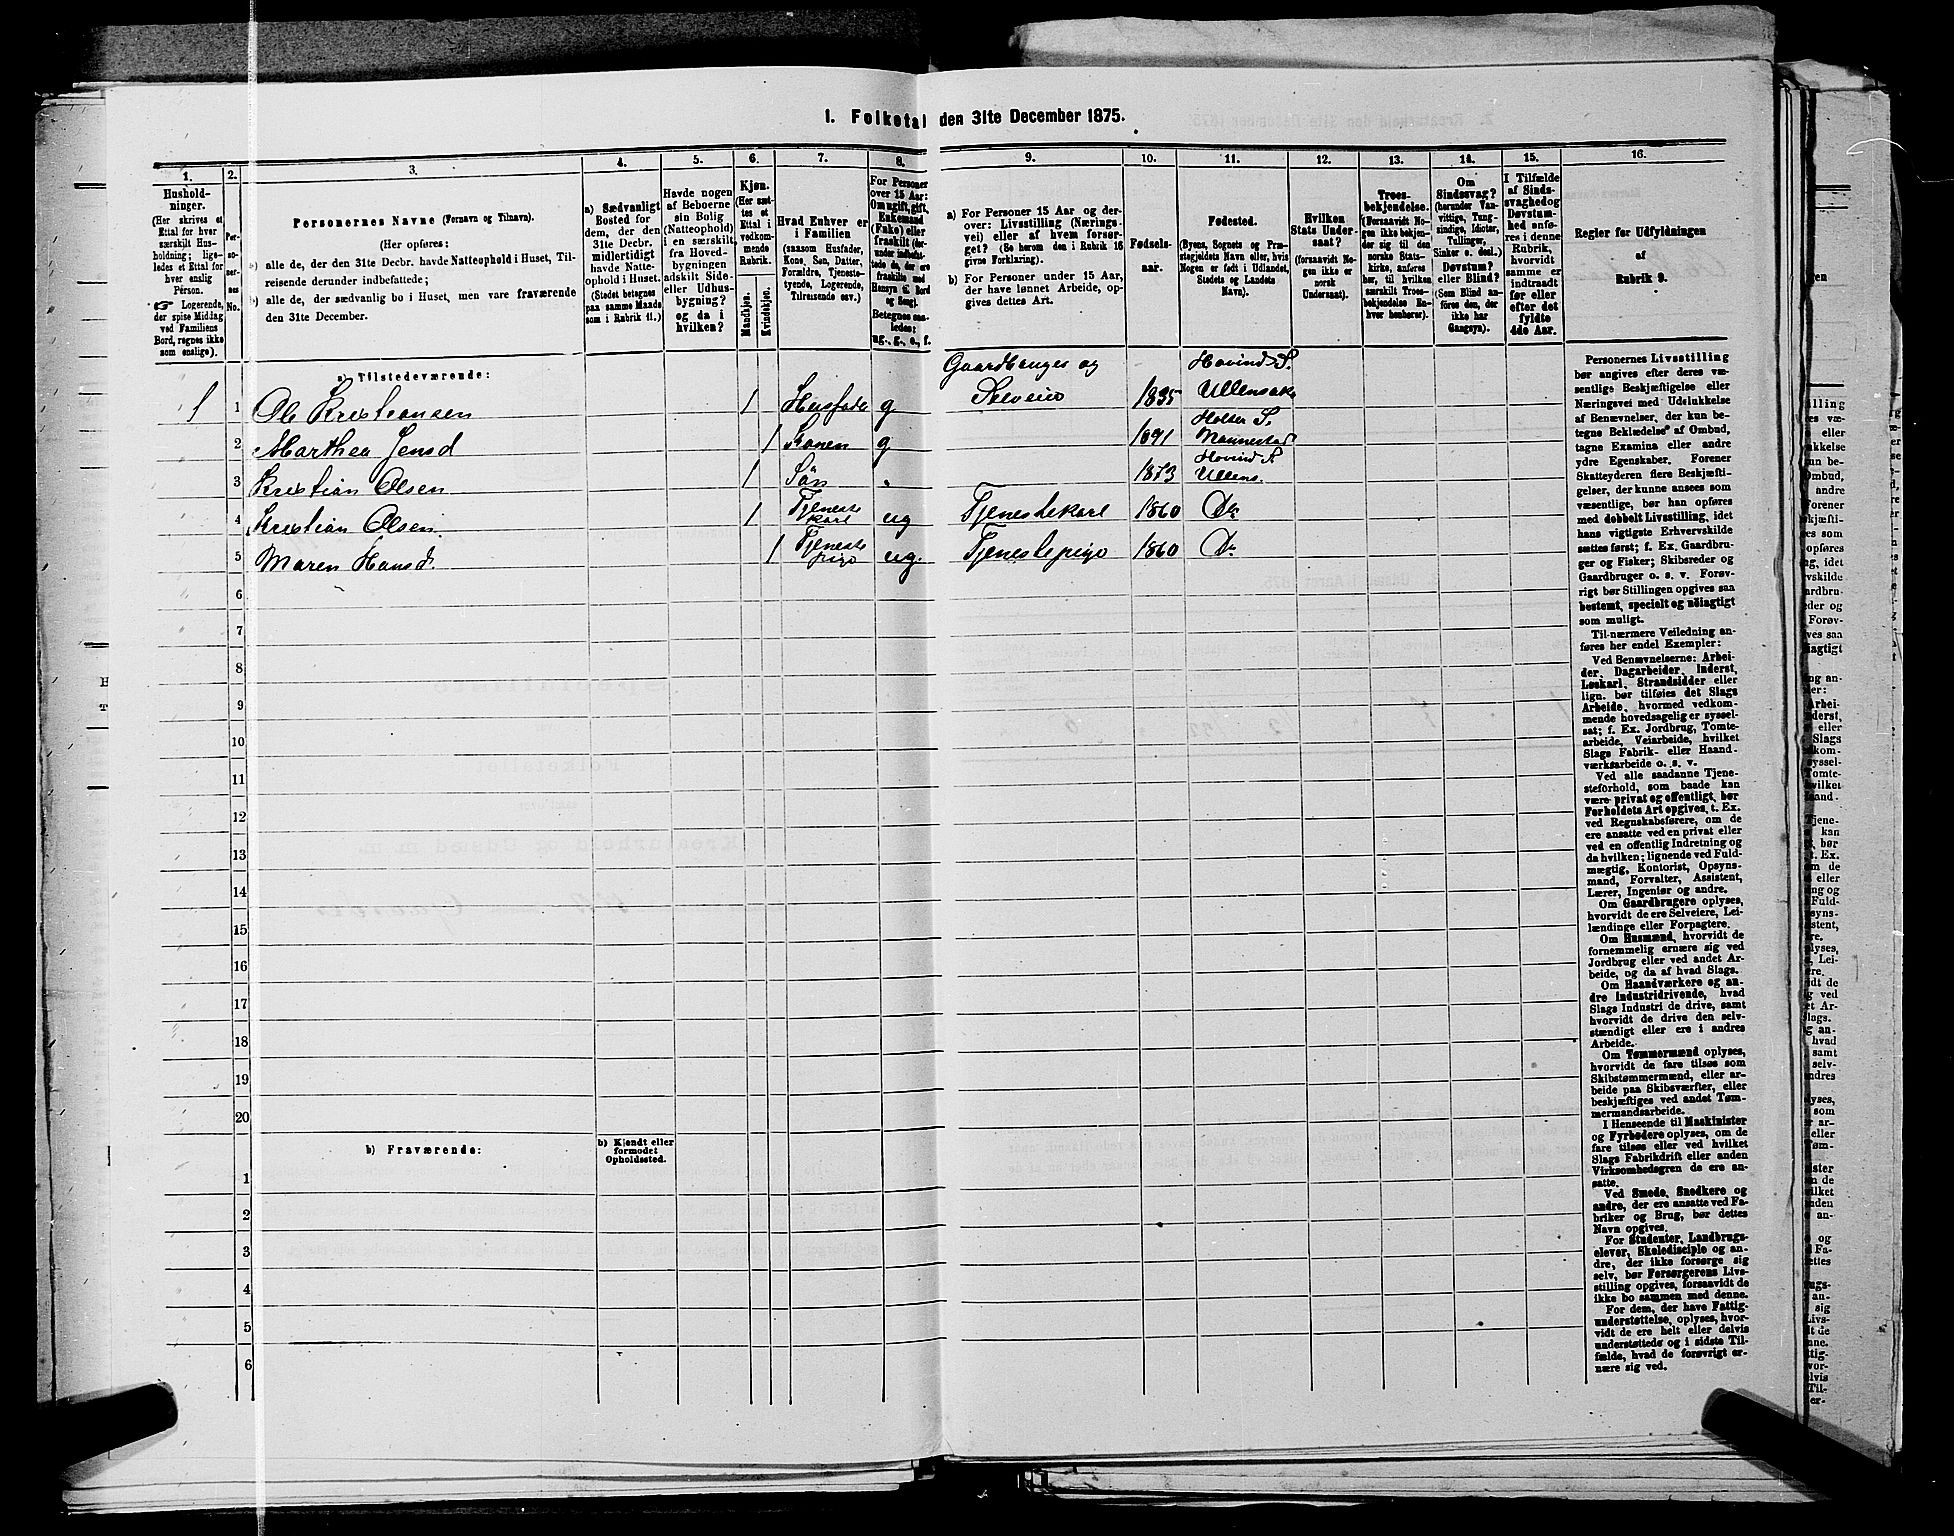 1. Folketal den 31te December 1875.
1. 2. 3. 4. 5. 6. 7. 8. 9. 10. 11. 12. 13. 14. 15. 16.
Hushold-
ninger.
(Her skrives et
Ettal for hver
særskilt Hus-
holdning; lige-
ledes et Ettal for
hver enslig
Person.
Logerende,
der spise Middag
ved Familiens
Bord, regnes ikke
som enslige).
Per-
so-
ner-
nes
No.
Personernes Navne (Fornavn og Tilnavn).
(Her opføres:
a) alle de, der den 31te Decbr. havde Natteophold i Huset, Til-
reisende derunder indbefattede;
b) alle de, der sædvanlig bo i Huset, men vare fraværende
den 31te December.
a) Sædvanligt
Bosted for
dem, der den
31te Decbr.
midlertidigt
havde Natte-
ophold i Huset.
(Stedet betegnes
paa samme Maade
som i Rubrik 11.)
Havde nogen
af Beboerne
sin Bolig
(Natteophold)
i en særskilt
fra Hoved-
bygningen
adskilt Side-
eller Udhus-
bygning?
og da i
hvilken?
Kjøn.
(Her sæt-
tes et
Ettal i
vedkom-
mende
Rubrik.
Mandkjøn.
Kvindekjøn.
Hvad Enhver er
i Familien
(saasom Husfader,
Kone, Søn, Datter,
Forældre, Tjeneste-
tyende, Logerende,
Tilreisende osv.)
For Personer
over 15 Aar:
Om ugift, gift,
Enkemand
(Enke) eller
fraskilt (der-
under indbefat-
tede de, der ere
fraskilte med
Hensyn til Bord
og Seng).
Betegnes saa-
ledes:
ug., g., e., f.
a) For Personer 15 Aar og der-
over: Livsstilling (Nærings-
vei) eller af hvem forsør-
get? (Se herom den i Rubrik 16
givne Forklaring).
b) For Personer under 15 Aar,
der have lønnet Arbeide, op-
gives dettes Art.
Fødsels-
aar.
Fødested.
(Byens, Sognets og Præ-
stegjeldets Navn eller, hvis
Nogen er født i Udlandet,
Stedets og Landets
Navn).
Hvilken
Stats Under-
saat?
(forsaavidt No-
gen ikke er
norsk
Undersaat).
Troes-
bekjendelse.
(Forsaavidt No-
gen ikke bekjen-
der sig til den
norske Stats-
kirke, anføres
her, til hvilken
særskilt Troes-
bekjendelse En-
hver henhører).
Om
Sindssvag?
(herunder Van-
vittige, Tung-
sindige, Idioter,
Tullinger,
Sinker o. desl.)
Døvstum?
eller Blind?
(Som Blind an-
føres den, der
ikke har
Gangsyn).
I Tilfælde
af Sinds-
svaghed og
Døvstum-
hed anfø-
res i denne
Rubrik,
hvorvidt
samme er
indtraadt
før eller
efter det
fyldte
4de Aar.
Regler for Udfyldningen
af
Rubrik 9.
a) Tilstedeværende:
1 1 Ole Kristiansen 1 Husfader g Gaardbruger og Selveier 1835 Hovind S. Ullensaker
2 Marthea Jensd 1 Konen g 1841 Holter S. Mannestad
3 Kristian Olsen 1 Søn . 1873 Hovind S. Ullens.
4 Kristian Olsen. 1 Tjenestekarl ug Tjenestekarl 1860 Do
5 Maren Hansd. 1 Tjenestepige ug. Tjenestepige 1860 Do
6
7
8
9
10
11
12
13
14
15
16
17
18
19
20
b) Fraværende:
b) Kjendt eller
formodet
Opholdssted.
1
2
3
4
5
6
Personernes Livsstilling
bør angives efter deres væ-
sentlige Beskjæftigelse eller
Næringsvei med Udelukkelse
af Benævnelser, der kun be-
tegne Beklædelse af Ombud,
tagne Examina eller andre
ydre Egenskaber. Forener
Skatteyderen flere Beskjæfti-
gelser, der kunne ansees som
væsentlige, bør han opføres
med dobbelt Livsstilling, idet
hans vigtigste Erhvervskilde
sættes først; f. Ex. Gaardbru-
ger og Fisker; Skibsreder og
Gaardbruger o. s. v. Forøv-
rigt bør Stillingen opgives saa
bestemt, specielt og nøiagtigt
som muligt.
Til nærmere Veiledning an-
føres her endel Exempler:
Ved Benævnelserne: Arbei-
der, Dagarbeider, Inderst,
Løskarl, Strandsidder eller
lign. bør tilføies det Slags
Arbeide, hvormed vedkom-
mende hovedsagelig er syssel-
sat; f. Ex. Jordbrug, Tomte-
arbeide, Veiarbeide, hvilket
Slags Fabrik- eller Haand-
værksarbeide o. s. v.
Ved alle saadanne Tjene-
steforhold, som baade kan
være privat og offentligt, bør
Forholdets Art opgives, t. Ex.
ved Regnskabsførere, om de
ere ansatte ved en privat eller
ved en offentlig Indretning og
da hvilken; lignende ved Fuld-
mægtig, Kontorist, Opsyns-
mand, Forvalter, Assistent,
Lærer, Ingeniør og andre.
Om Gaardbrugere oplyses,
hvorvidt de ere Selveiere, Lei-
lændinge eller Forpagtere.
Om Husmænd, hvorvidt de
fornemmelig ernære sig ved
Jordbrug eller ved andet Ar-
beide, og da af hvad Slags.
Om Haandværkere og an-
dre Industridrivende, hvad
Slags Industri de drive, samt
hvorvidt de drive den selv-
stændigt eller ere i andres
Arbeide.
Om Tømmermænd oplyses,
hvorvidt de fare tilsøs som
Skibstømmermænd, eller ar-
beide paa Skibsværfter, eller
beskjæftiges ved andet Tøm-
mermandsarbeide.
I Henseende til Maskinister
og Fyrbødere oplyses, om de
fare tilsøs eller ved hvilket
Slags Fabrikdrift eller anden
Virksomhedsgren de ere an-
satte.
Ved Smede, Snedkere og
andre, der ere ansatte ved Fa-
briker og Brug, bør dettes
Navn opgives.
For Studenter, Landbrugs-
elever, Skoledisciple og an-
dre, der ikke forsørge sig
selv, bør Forsørgerens Livs-
stilling opgives, forsaavidt de
ikke bo sammen med denne.
For dem, der have Fattig-
understøttelse, oplyses, hvor-
vidt de ere helt eller delvis
understøttede og i sidste Til-
fælde, hvad de forøvrigt er-
nære sig ved.